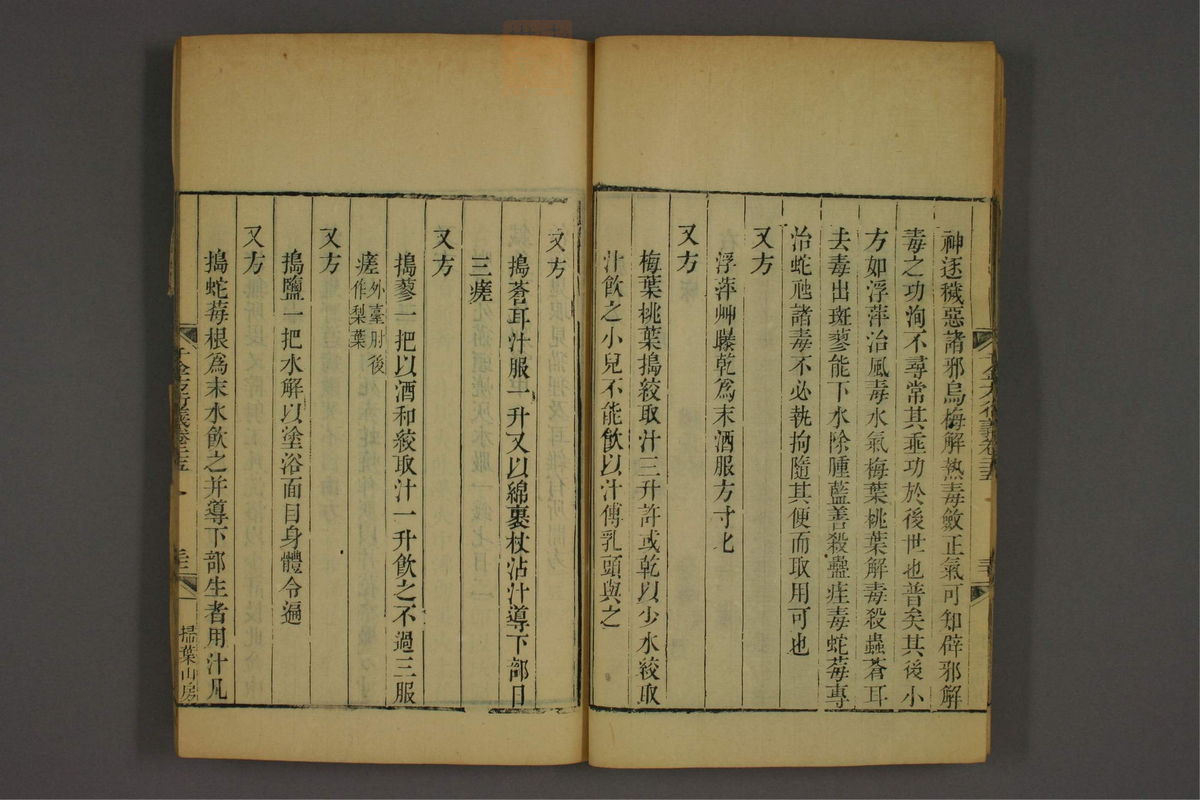 神逐穢惡諸邪烏梅解熱毒斂正氣可知辟邪解
毒之功洵不尋常其垂功於後世也普矣其後小
方如浮萍治風毒水氣梅葉桃葉解毒殺蟲蒼耳
去毒出斑蓼能下水除腫藍善殺蠱疰毒蛇莓專
治蛇虺諸毒不必執拘隨其便而取用可也
又方
浮萍艸曝乾為末酒服方寸匕
又方
梅葉桃葉搗絞取汁三升許或乾以少水絞取
汁飲之小兒不能飲以汁傅乳頭與之
又方
搗蒼耳汁服一升又以綿裹杖沾汁導下部日
三瘥
又方
搗蓼一把以酒和絞取汁一升飲之不過三服
瘥外臺肘後作梨葉
又方
搗鹽一把水解以塗浴面目身體令遍
又方
搗蛇莓根為末水飲之并導下部生者用汁凡
千金方衍義卷二十五
三十三
掃葉山房